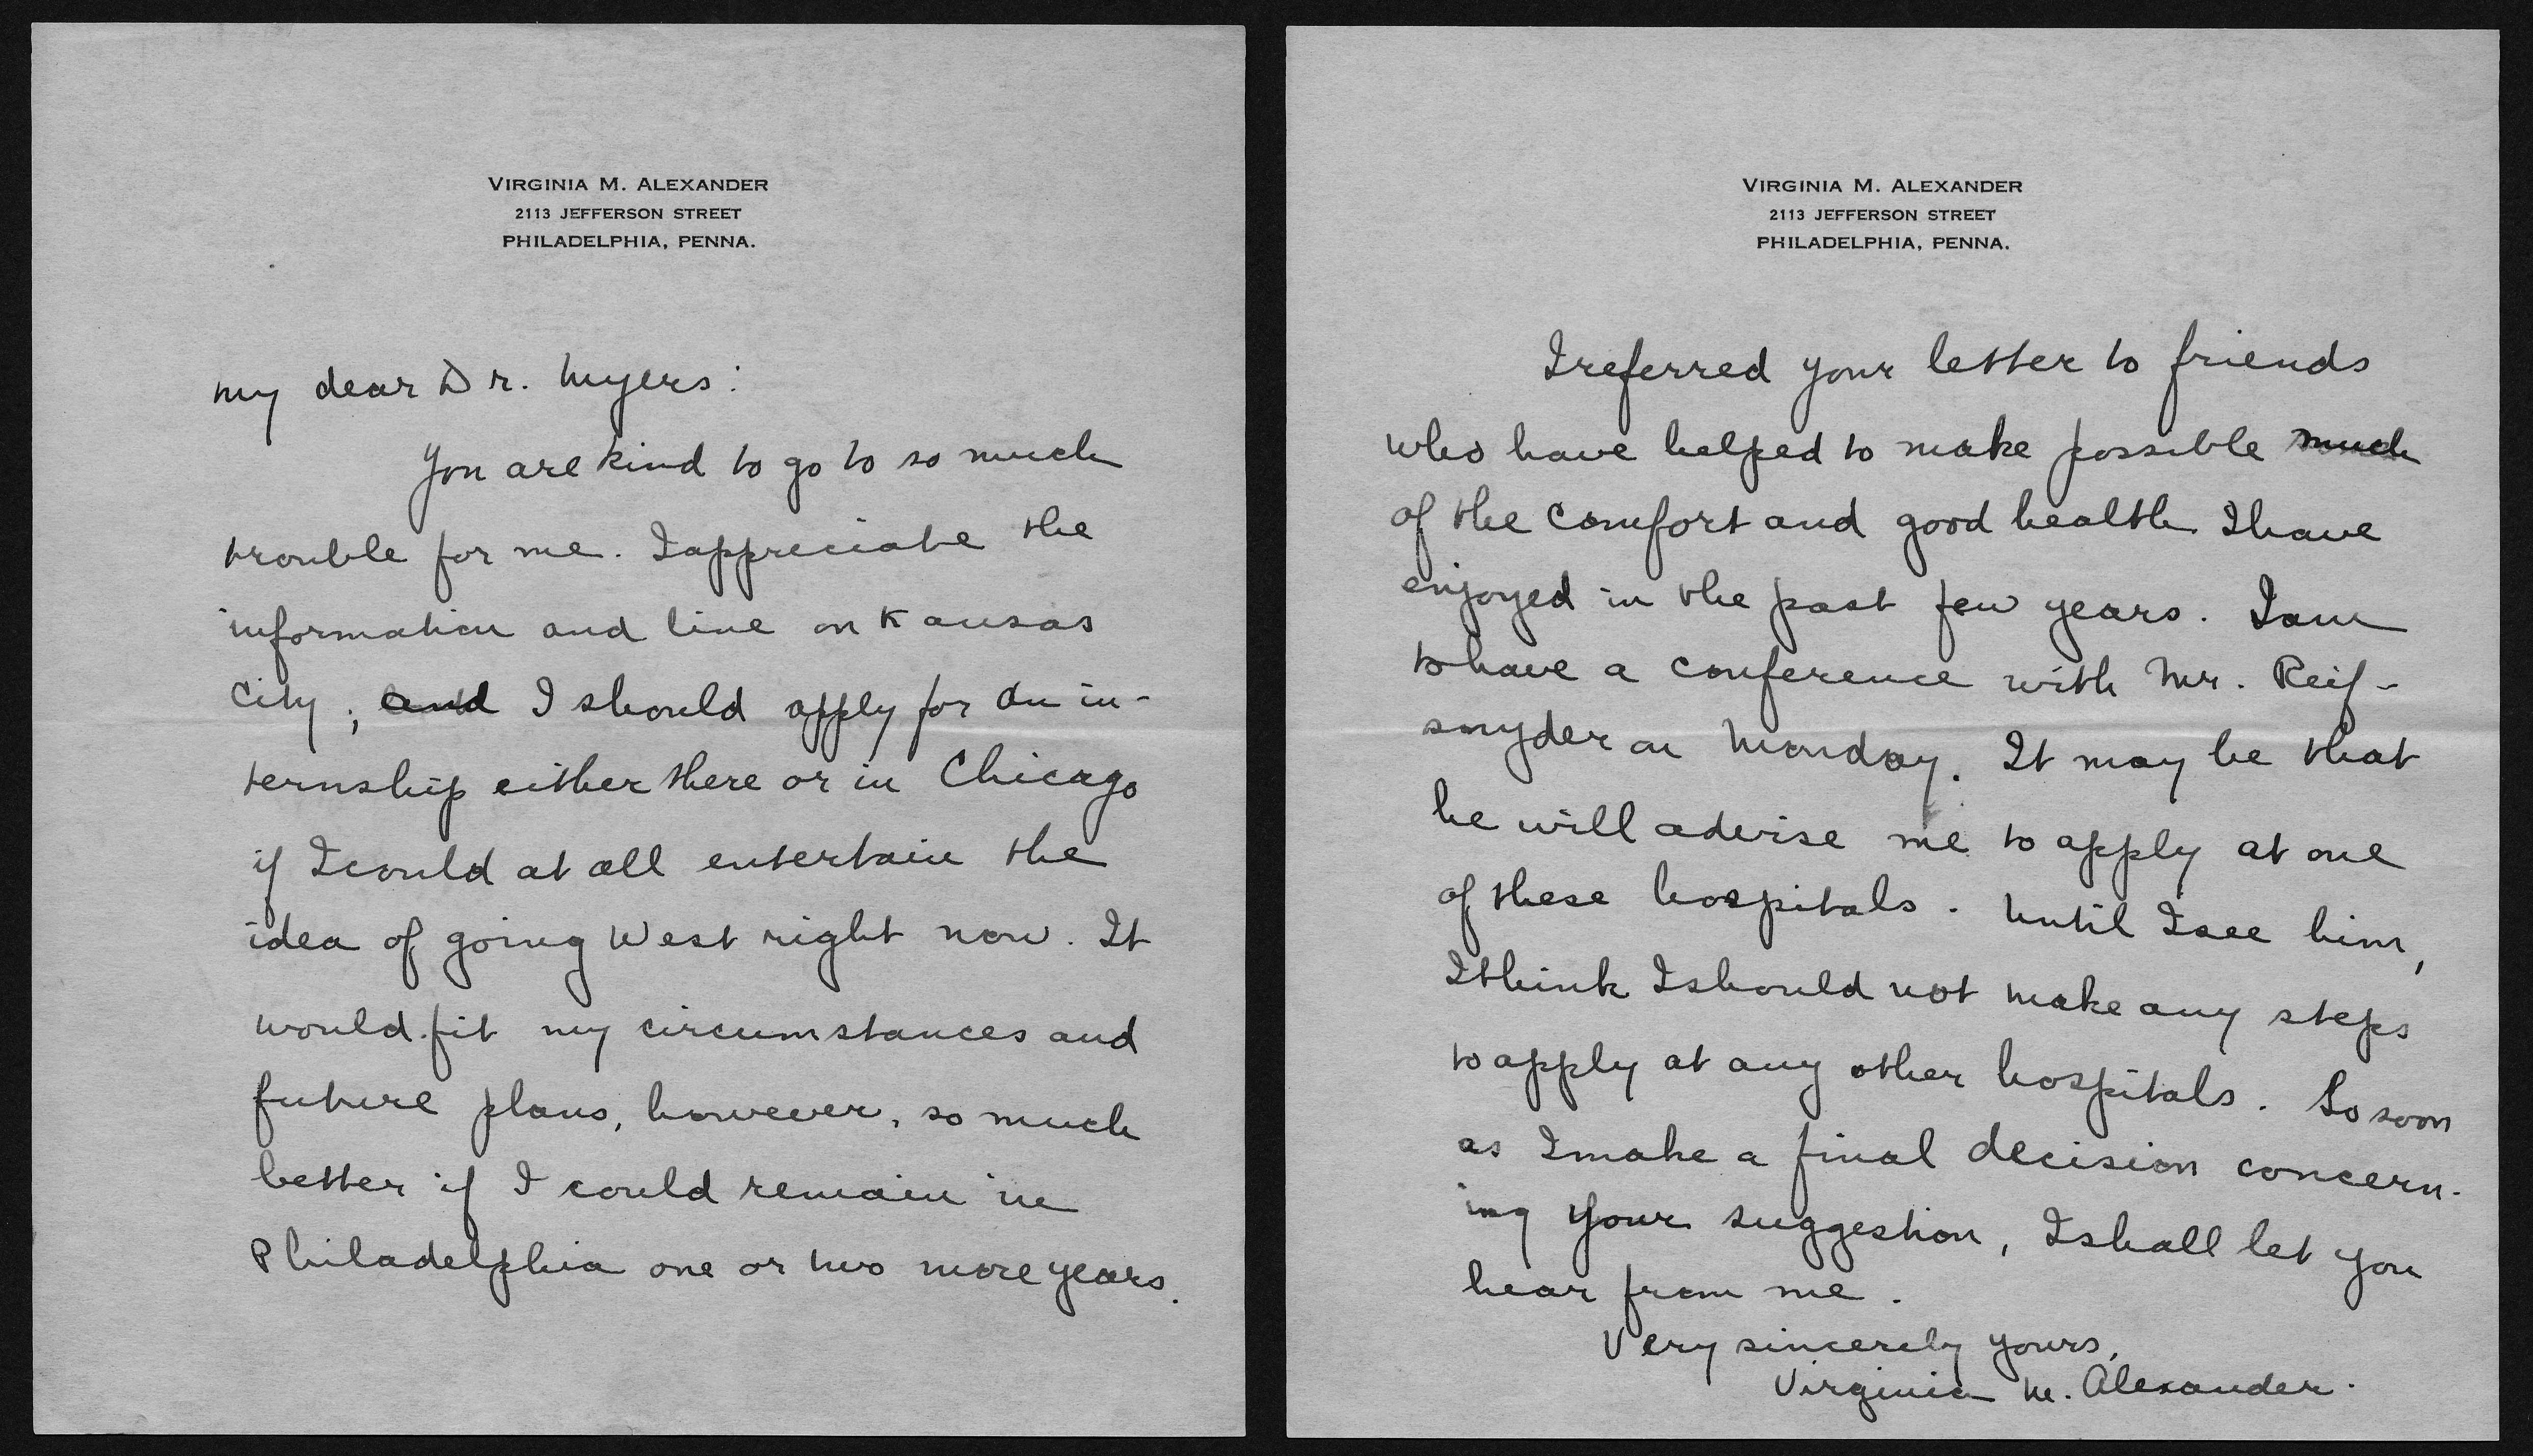 VIRGINIA M. ALEXANDER
2113 JEFFERSON STREET
PHILADELPHIA, PENNA.
My dear Dr. Myers:
You are kind to go to so much
trouble for me. I appreciate the
information and line on Kansas
City; and I should apply for an in-
ternship either there or in Chicago
if I could at all entertain the
idea of going West right now. It
would fit my circumstances and
future plans, however, so much
better if I could remain in
Philadelphia one or two more years.
VIRGINIA M. ALEXANDER
2113 JEFFERSON STREET
PHILADELPHIA, PENNA.
I referred your letter to friends
who have helped to make possible much
of the comfort and good health I have
enjoyed in the past few years. I am
to have a conference with Mr. Reif-
snyder on Monday. It may be that
he will advise me to apply at one
of these hospitals. Until I see him,
I think I should not make any steps
to apply at any other hospitals. So soon
as I make a final decision concern-
ing your suggestion, I shall let you
hear from me.
Very sincerely yours,
Virginia M. Alexander.